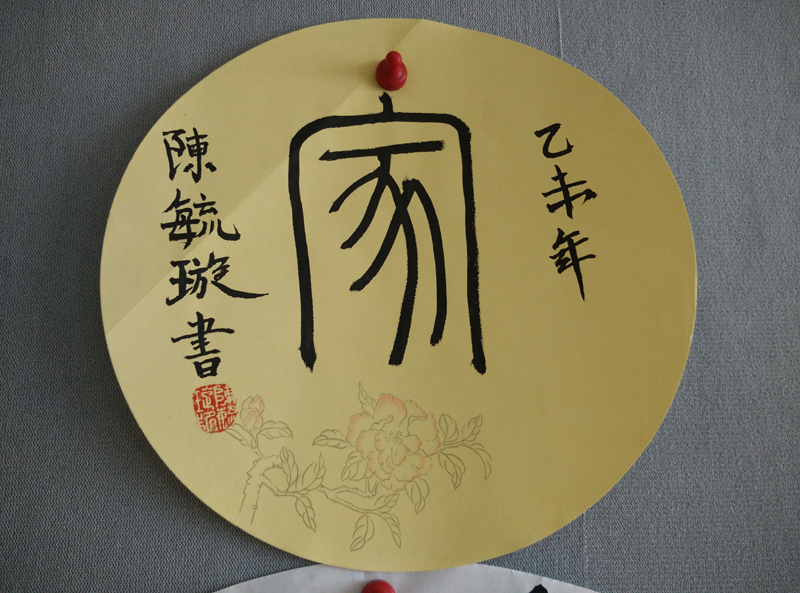 乙未年
家
陳毓璇書